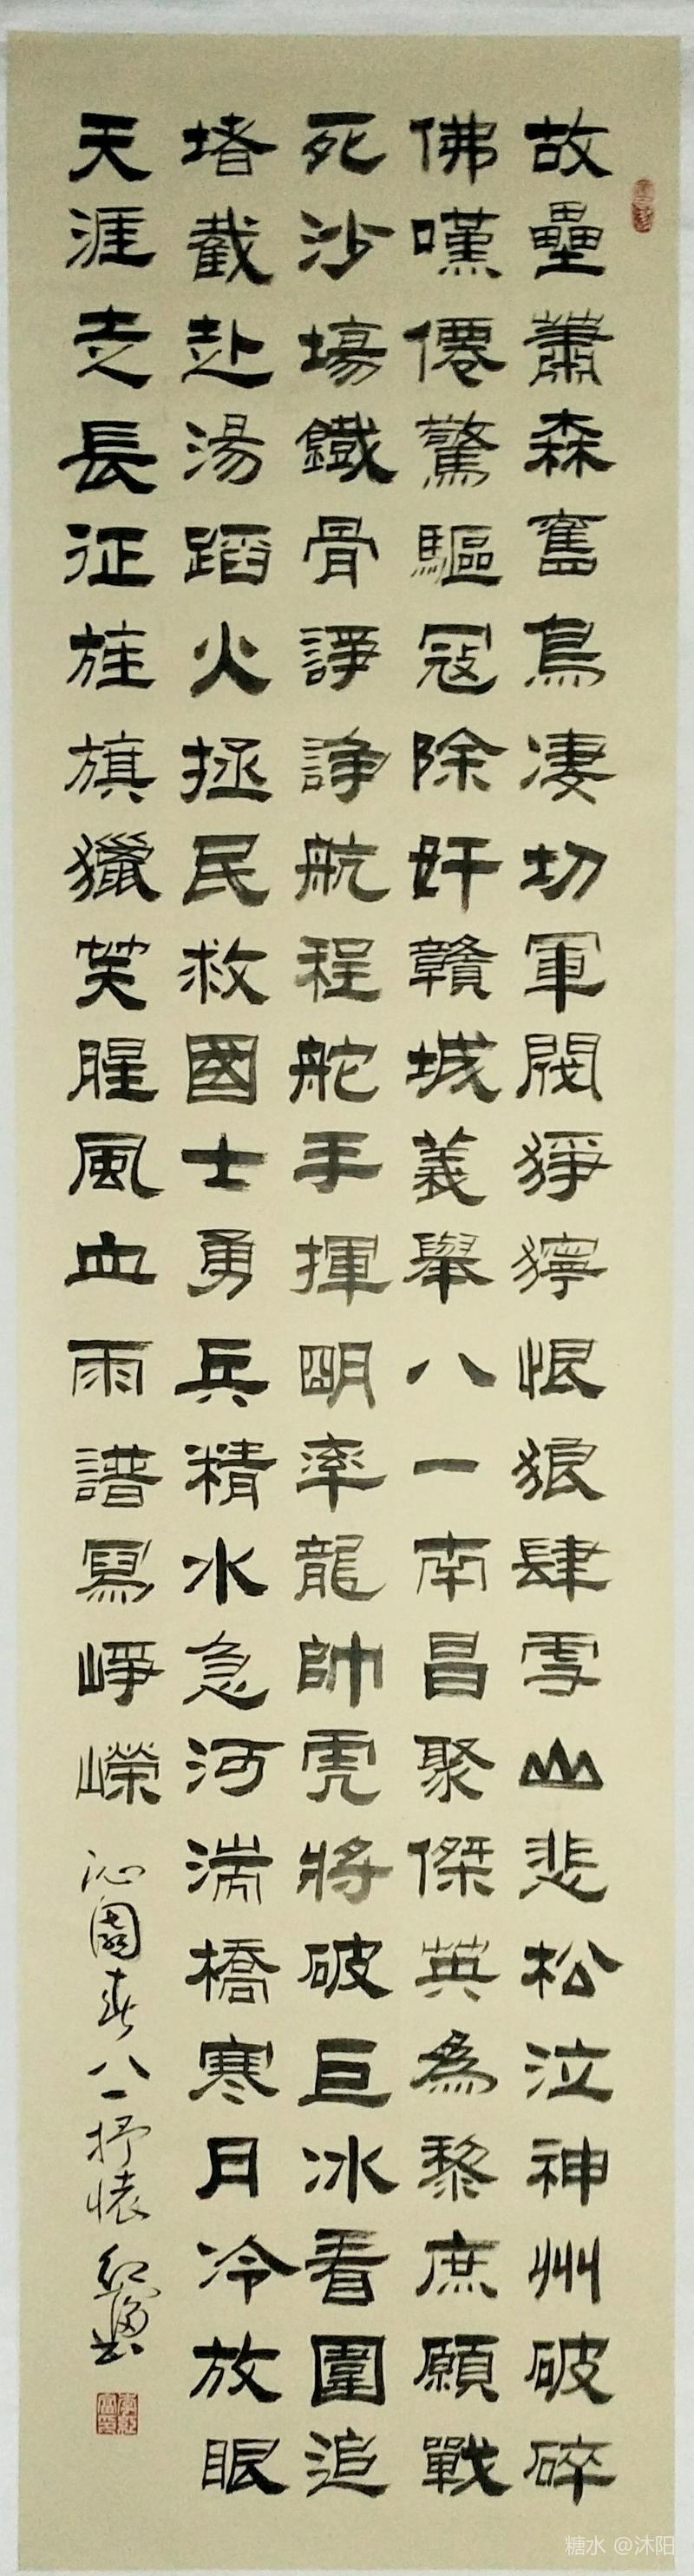 故壘蕭森舊鳥凄切軍閥猙獰恨狼肆雪山悲松泣神州破碎
佛嘆僊驚驅寇除奸贛城義舉八一南昌聚傑英為黎庶願戰
死沙場鐵骨諍諍航程舵手揮朙率龍帥虎將破巨冰看圍追
堵截赴湯蹈火拯民救國士勇兵精水急河湍橋寒月冷放眼
天涯走長征旌旗獵獵腥風血雨譜寫崢嶸
沁園春八一抒懷
糖水 @沐阳